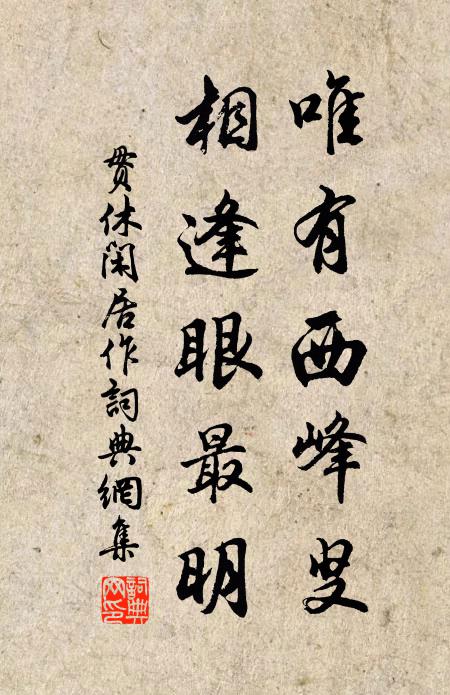 唯有西峰叟
相逢眼最明
貫休閑居作詞典網集
詞典網印